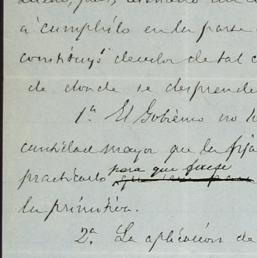 á cumplirlo en la parte
constituyó deudor de tal c
de donde se desprende
1ª El Gobierno no h
cantidad mayor que la fija
para que fuese
practicado
la primitiva.
2ª La aplicación de